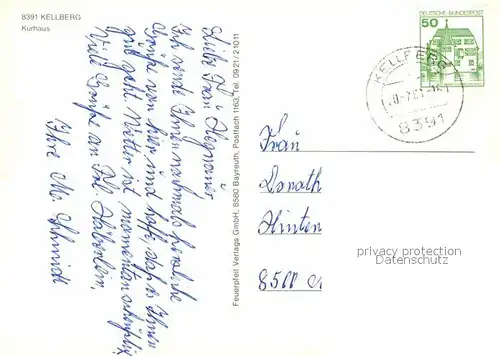 8391 KELLBERG
Kurhaus
Liebe Frau
Ich sende Ihnen nochmals herzliche
Grüße von hier und hoffe, daß es Ihnen
gut geht. Wetter ist momentan
Viele Grüße an Frl.
Ihre M. Schmidt
Feuerpfeil Verlags GmbH, 8580 Bayreuth, Postfach 1163, Tel. 09 21 / 2 10 11
DEUTSCHE BUNDESPOST
50
KELLBERG
8391
Frau
Donath
Hinten
8500
privacy protection
Datenschutz